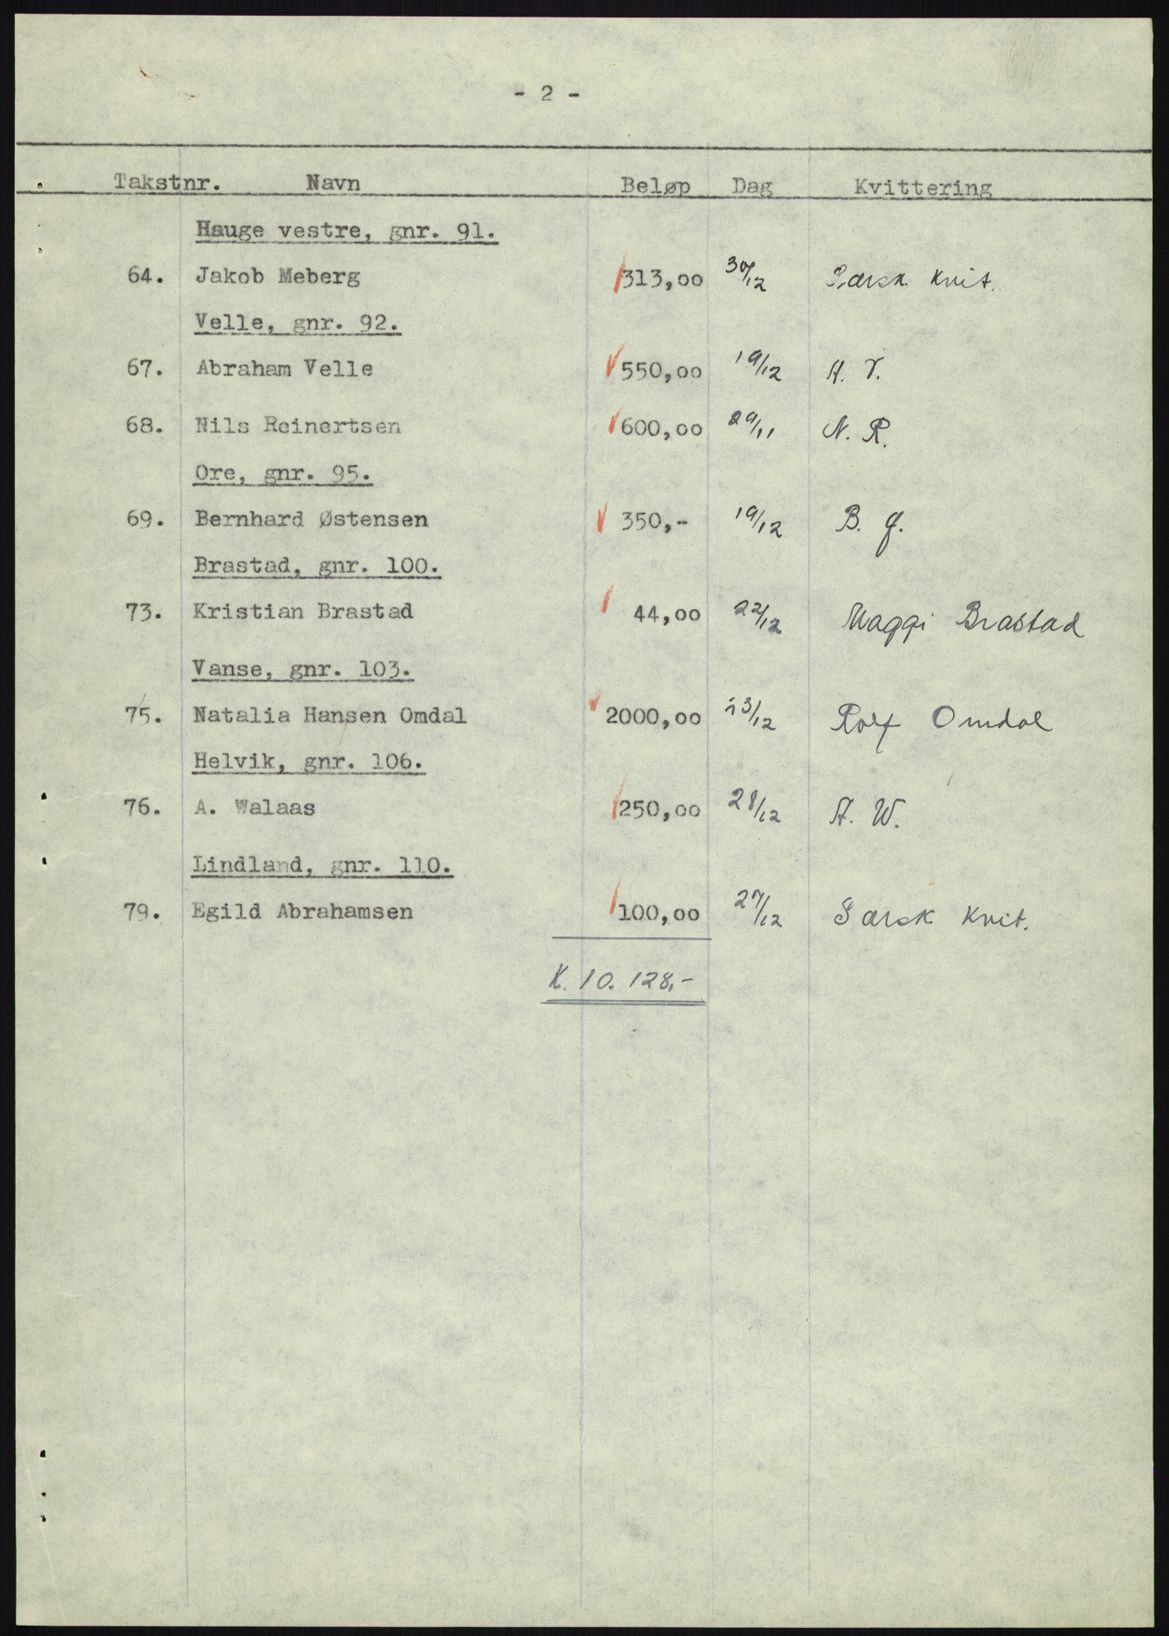 - 2 -
Takstnr. Navn Beløp Dag Kvittering
Hauge vestre, gnr. 91.
64. Jakob Meberg 313,00 30/12 Særsk. kvit.
Velle, gnr. 92.
67. Abraham Velle 550,00 19/12 A. V.
68. Nils Reinertsen 600,00 29/11 N. R.
Ore, gnr. 95.
69. Bernhard Østensen 350,- 19/12 B. Ø.
Brastad, gnr. 100.
73. Kristian Brastad 44,00 22/12 Maggi Brastad
Vanse, gnr. 103.
75. Natalia Hansen Omdal 2000,00 23/12 Rolf Omdal
Helvik, gnr. 106.
76. A. Walaas 250,00 28/12 A. W.
Lindland, gnr. 110.
79. Egild Abrahamsen 100,00 27/12 Særsk kvit.
K. 10.128,-